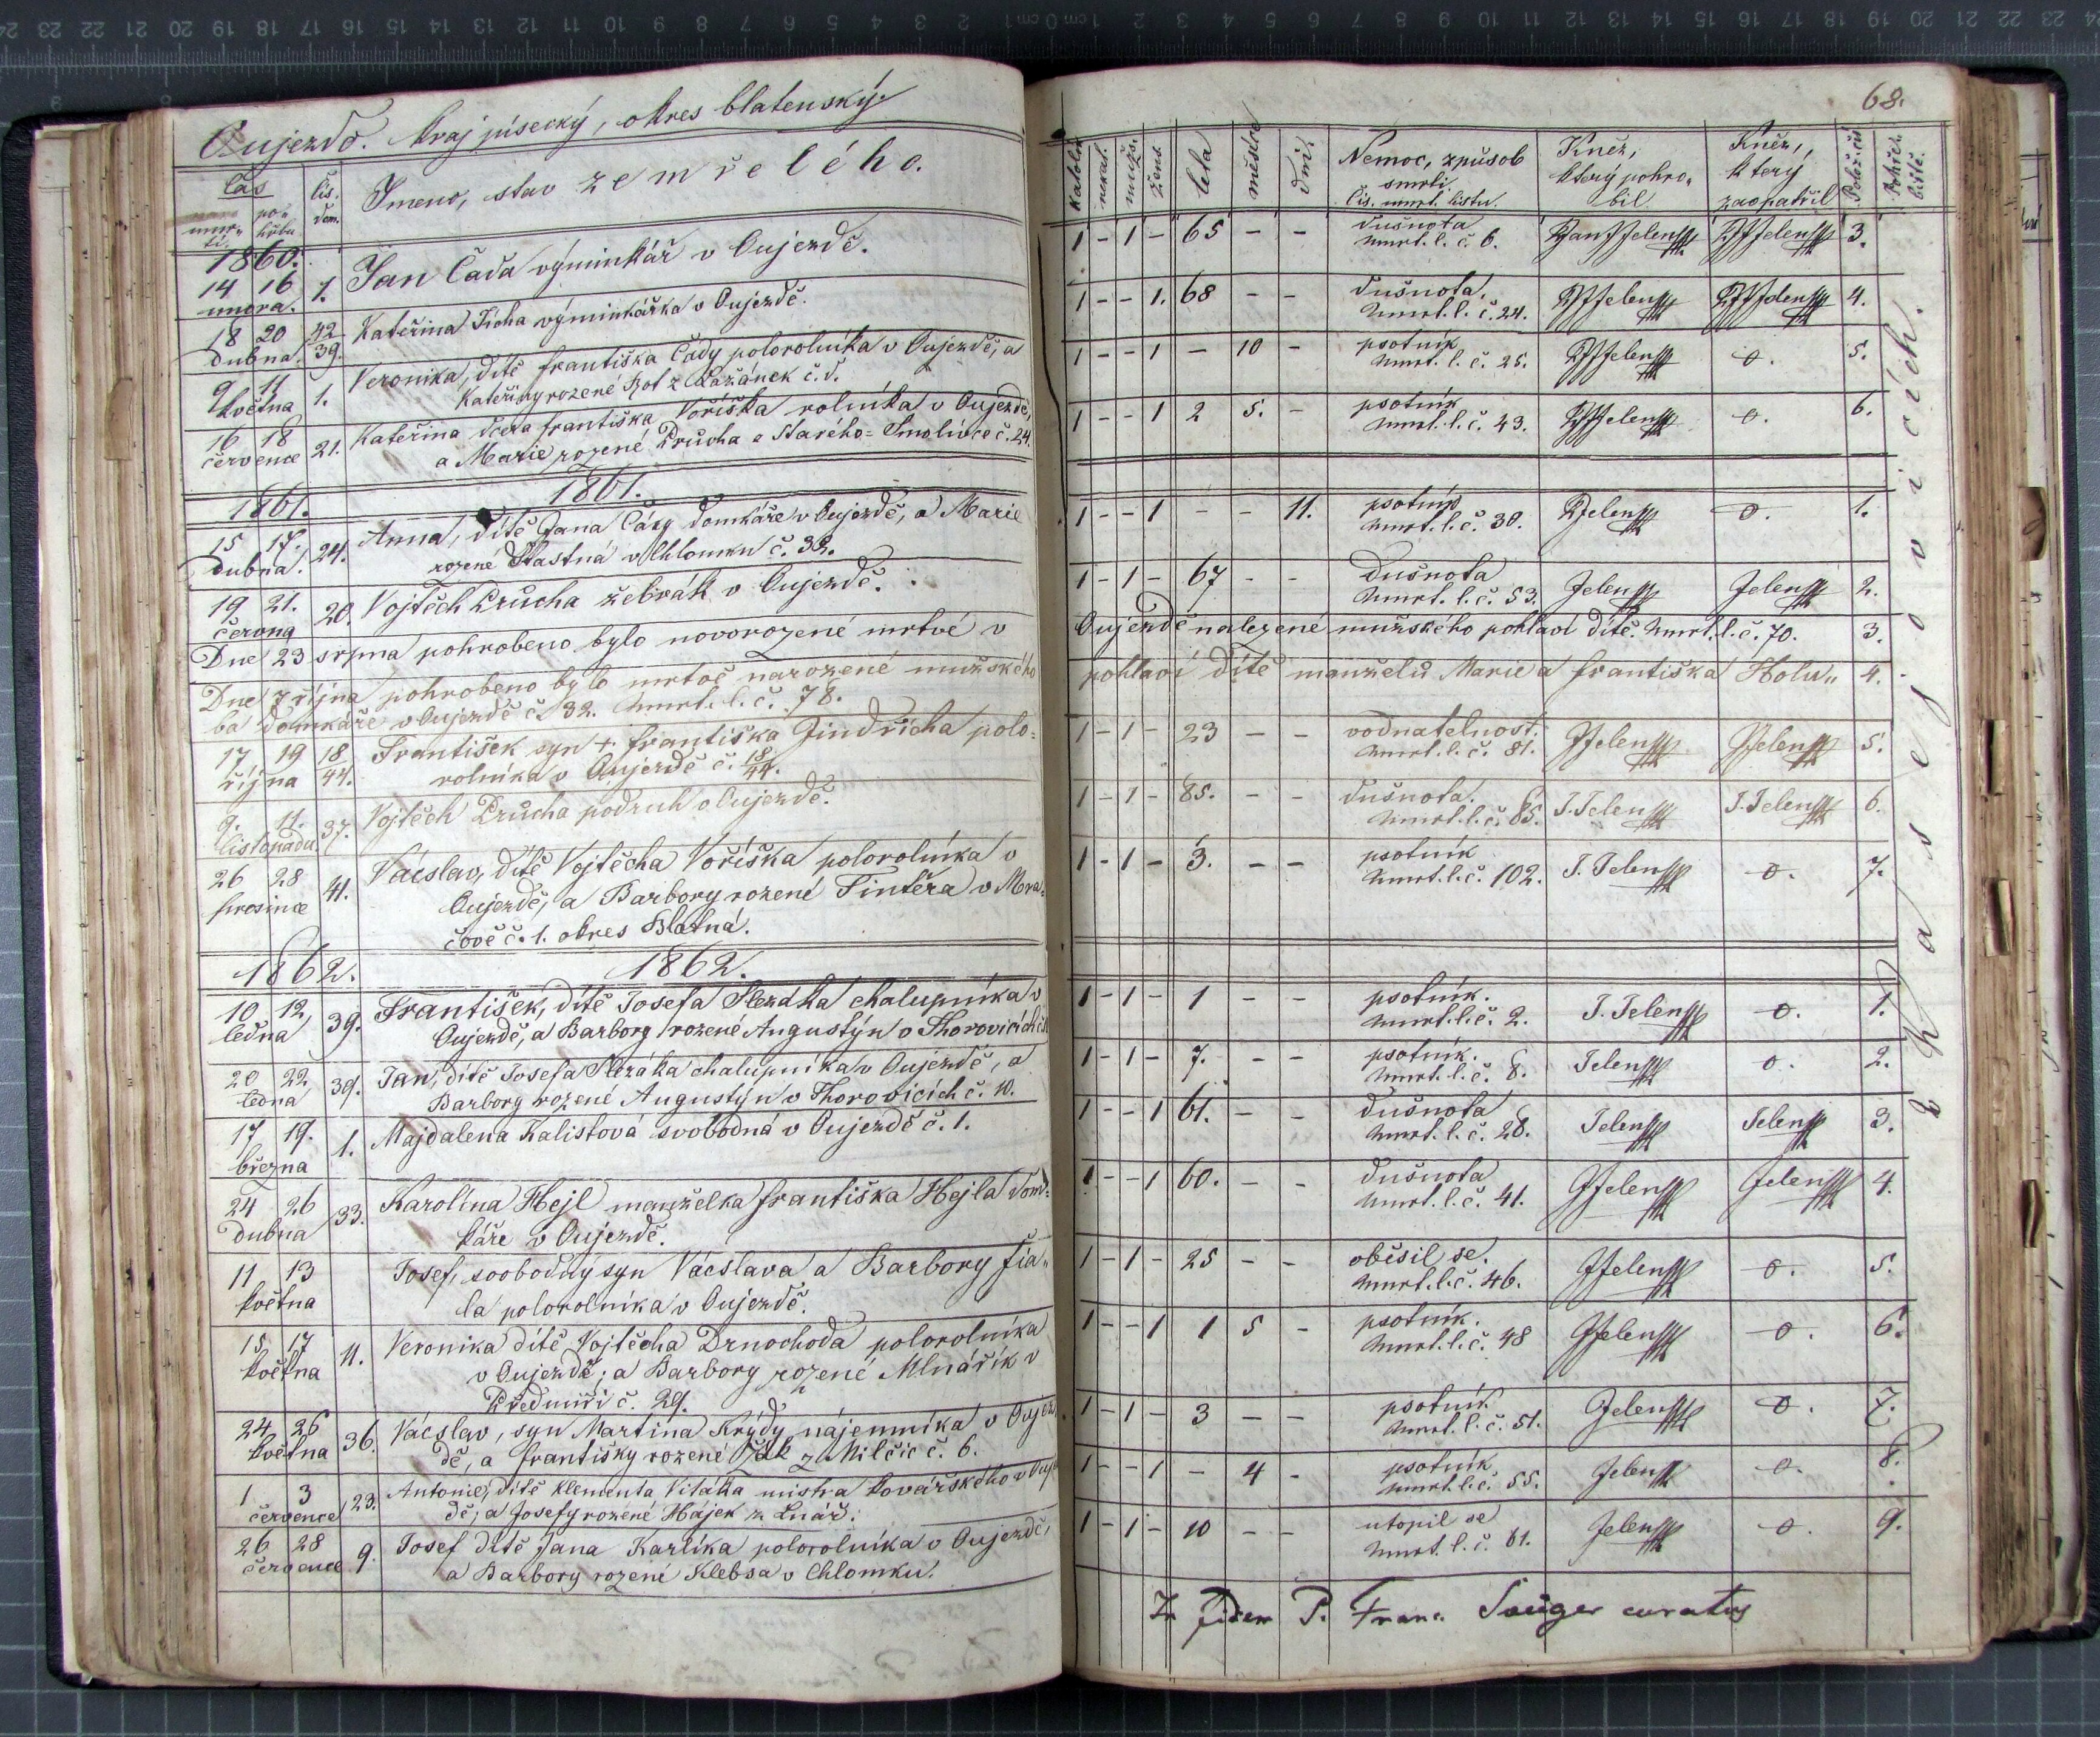 Oujezd. Kraj písecký, okres blatenský.
čas
úmrtí, pohřbu
čís. dom.
Jmeno, stav zemřelého.
1860.
14 16 unora. 1. Jan Čada výminkář v Oujezdě.
18 20 dubna. 42 39. Kateřina Ticha výminkářka v Oujezdě.
9 11 května 1. Veronika, dítě františka Čady polorolníka v Oujezdě, a
Kateřiny rozené Kot z Lažánek č. 8.
16 18 července 21. Kateřina dcera františka Voříška rolníka v Oujezdě,
a Marie rozené Průcha z Starého-Smolivce č. 24.
1861. 1861.
15 17 dubna. 24. Anna, dítě Jana Cády domkáře v Oujezdě, a Marie
rozené Štastná v Chlomku č. 32.
19 21. června 20. Vojtěch Průcha žebrák v Oujezdě.
Dne 23 srpna pohrobeno bylo novorozené mrtvé v
Dne 7 října pohrobeno bylo mrtvě narozené mužského
ba domkáře v Oujezdě č. 32. úmrt. l. č. 78.
17 19 října 18/44. František syn + františka Jindřicha polo-
rolníka v Oujezdě č. 18/44.
9. 11. listopadu 37. Vojtěch Průcha podruh v Oujezdě.
26 28 prosince 41. Vácslav, dítě Vojtěcha Voříška polorolníka v
Oujezdě, a Barbory rozené Tintěra v Mra-
čově č. 1. okres Blatná.
1862. 1862.
10 12, ledna 39. František, dítě Josefa Slezáka chalupníka v
Oujezdě, a Barbory rozené Augustýn v Thorovicích č.
20 22, ledna 39. Jan, dítě Josefa Slezáka chalupníka v Oujezdě, a
Barbory rozené Augustýn v Thorovicích č. 10.
17 19. března 1. Majdalena Kalistová svobodná v Oujezdě č. 1.
24 26 dubna 33. Karolína Hejl manželka františka Hejla dom-
káře v Oujezdě.
11 13 května Josef, svobodný syn Vácslava a Barbory fia-
la polorolníka v Oujezdě.
15 17 května 11. Veronika dítě Vojtěcha Drnochoda polorolníka
v Oujezdě; a Barbory rozené Mlnářík v
Předmíři č. 29.
24 26 května 36. Vácslav, syn Martina Krýdy nájemníka v Oujez-
dě, a františky rozené Žák z Milčic č. 6.
1 3 července 23. Antonie, dítě Klementa Vitáka mistra kovářského v Ouje
dě; a Josefy rozené Hájek z Lnář.
26 28 července 9. Josef dítě Jana Karlíka polorolníka v Oujezdě,
a Barbory rozené Klebsa v Chlomku.
68.
katolík nekat. mužs. žens. leta měsíce dní. Nemoc, způsob smrti. Čís. úmrt. listu. Kněz, který pohrobil Kněz, který zaopatřil Polož. čís Pohřebiště.
1 - 1 - 65 - - dušnota úmrt. l. č. 6. Jan Jelen Jelen 3.
1 - - 1. 68 - - dušnota. úmrt. l. č. 24. Jelen Jelen 4.
1 - - 1 - 10 - psotník úmrt. l. č. 25. Jelen o. 5.
1 - - 1 2 5. - psotník úmrt. l. č. 43. Jelen o. 6.
1 - - 1 - - 11. psotník úmrt. l. č. 30. Jelen o. 1.
1 - 1 - 67 - - dušnota úmrt. l. č. 53. Jelen Jelen 2.
Oujezdě nalezené mužského pohlaví dítě. úmrt. l. č. 70. 3.
pohlaví dítě manželů Marie a františka Holu- 4.
1 - 1 - 23 - - vodnatelnost. úmrt. l. č. 81. Jelen Jelen 5.
1 - 1 - 85. - - dušnota. úmrt. l. č. 85. J. Jelen J. Jelen 6.
1 - 1 - 3. - - psotník úmrt. l. č. 102. J. Jelen o. 7.
1 - 1 - 1 - - psotník. úmrt. l. č. 2. J. Jelen o. 1.
1 - 1 - 7. - - psotník. úmrt. l. č. 8. Jelen o. 2.
1 - - 1 61. - - dušnota úmrt. l. č. 28. Jelen Jelen 3.
1 - - 1 60. - - dušnota úmrt. l. č. 41. Jelen Jelen 4.
1 - 1 - 25 - - oběsil se. úmrt. l. č. 46. Jelen o. 5.
1 - - 1 1 5 - psotník. úmrt. l. č. 48 Jelen o. 6.
1 - 1 - 3 - - psotník úmrt. l. č. 51. Jelen o. 7.
1 - - 1 - 4 - psotník úmrt. l. č. 55. Jelen o. 8.
1 - 1 - 10 - - utopil se úmrt. l. č. 61. Jelen o. 9.
v Kasejovicích.
In fidem P. Franc. Sauger curatus